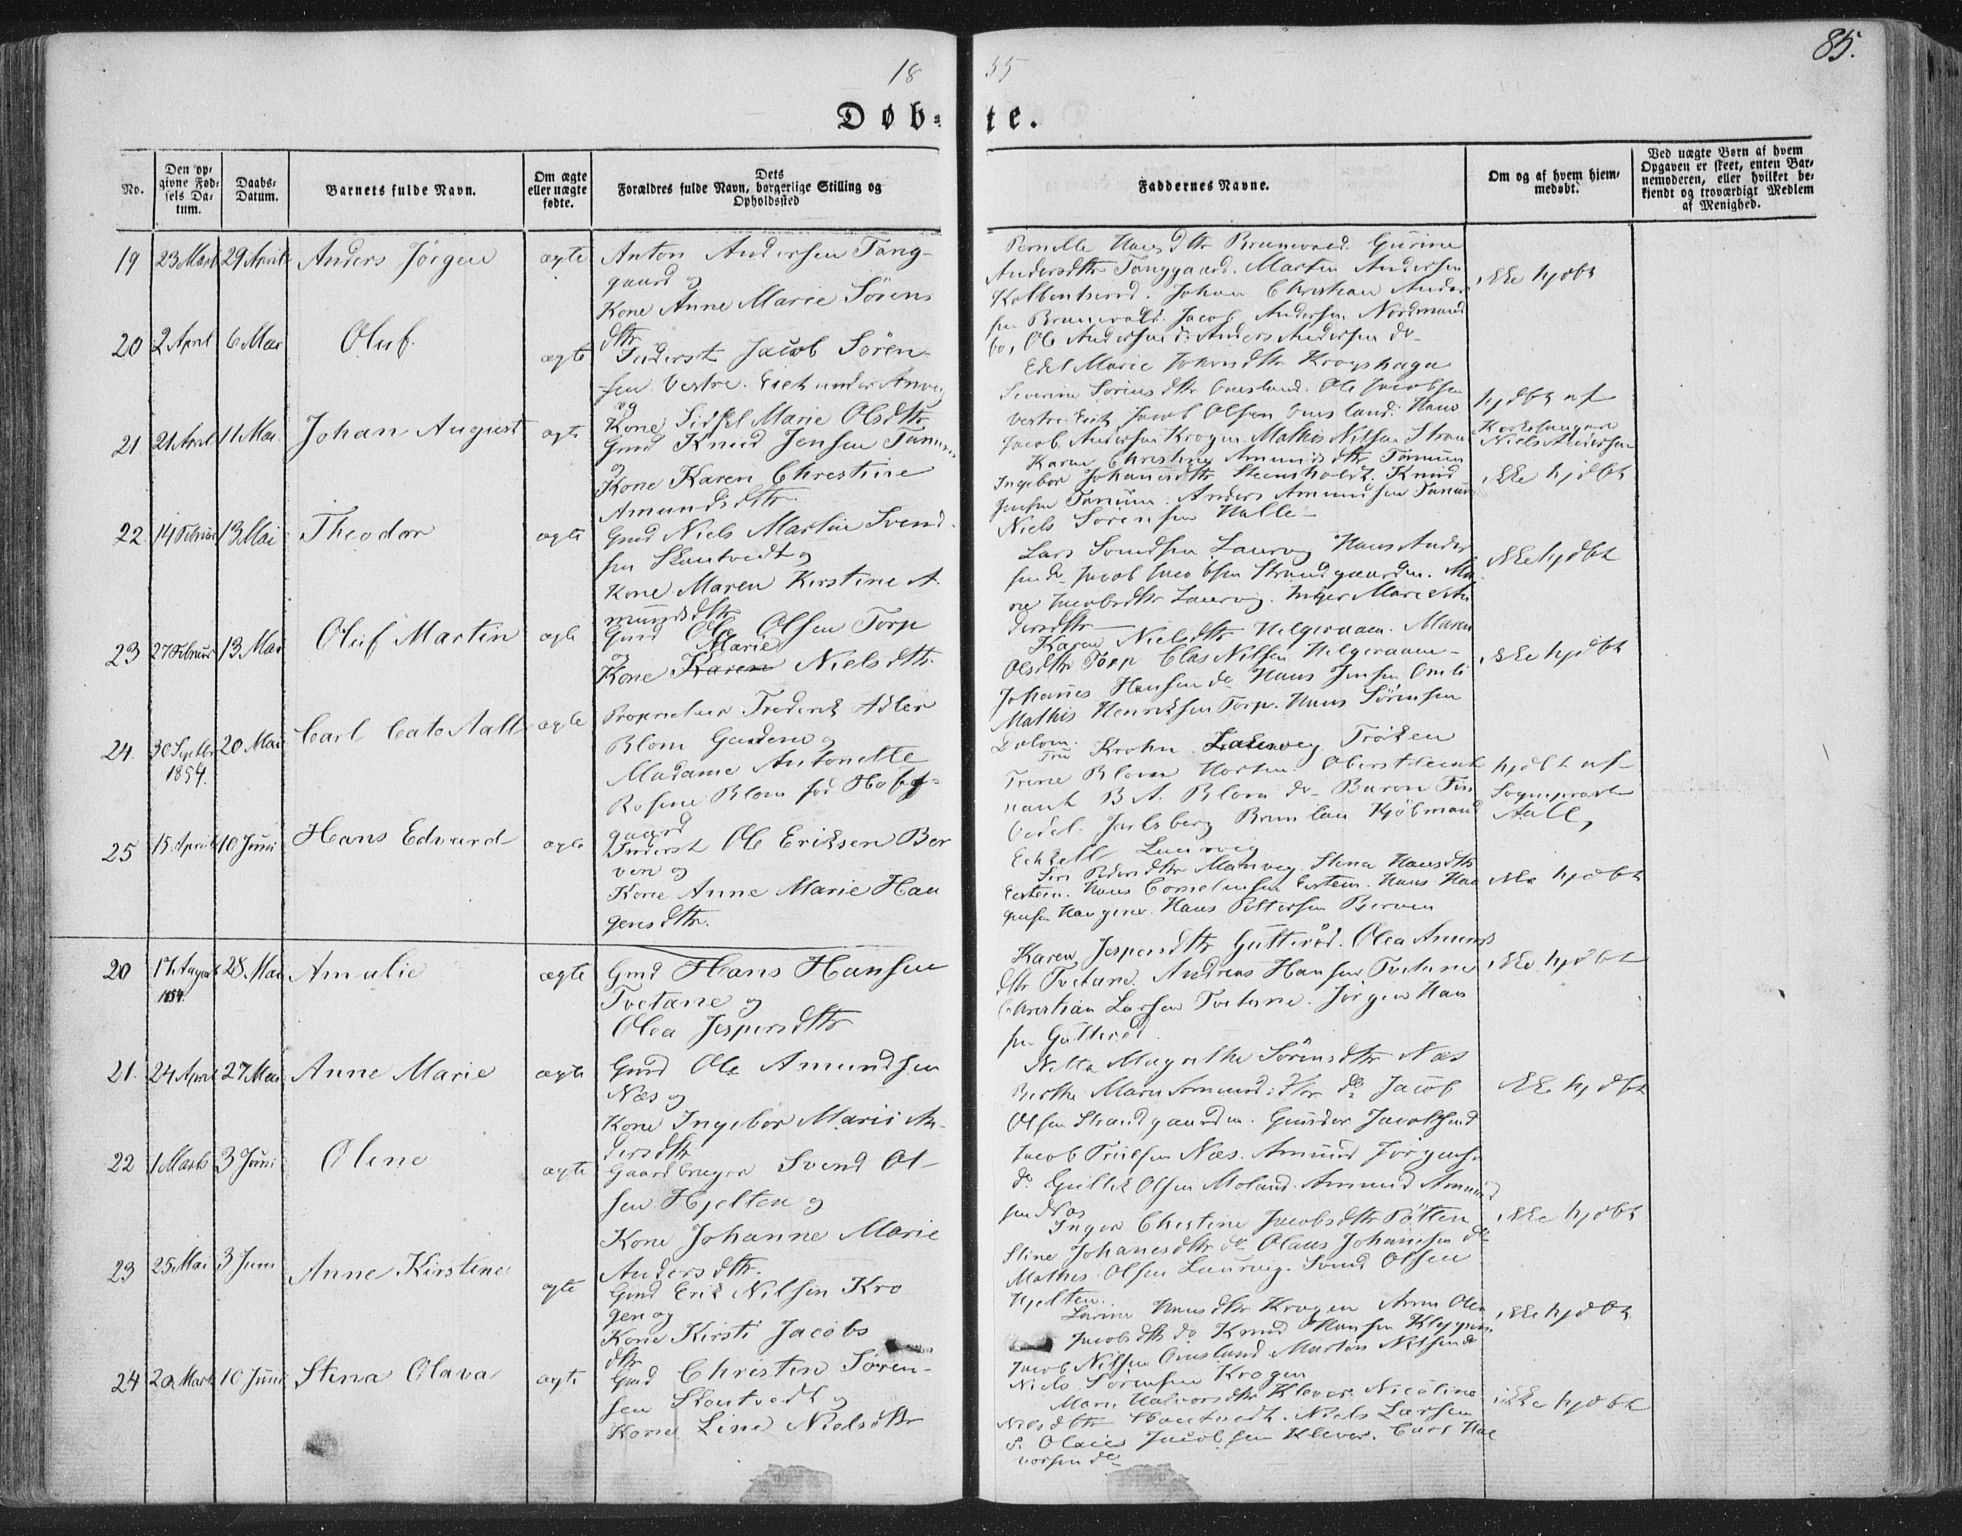 18 55
85.
Døb- te.
No.
Den opgivne Fødsels Datum.
Daabs-Datum.
Barnets fulde Navn.
Om ægte eller uægte fødte.
Dets Forældres fulde Navn, borgerlige Stilling og Opholdssted
Faddernes Navne.
Om og af hvem hjemmedøbt.
Ved uægte Børn af hvem Opgaven er skeet, enten Barnemoderen, eller hvilket bekjendt og troværdigt Medlem af Menighed.
19 23 Marts 29 April Anders Jørgen ægte Anton Andersen Tang-
gaard og
Kone Anne Marie Sørens
dtr
Pernille Hansdtr Brunevald. Gurine
Andersdtr Tanggaard. Marten Andersen
Johan Christian Ander
sen Brunevald. Jacob Andersen Nordmand
Ole Andersen do Anders Andersen do
ikke hjdbt
20 2 April 6 Mai Oluf. ægte Inderst Jacob Søren-
sen Vestre. Eiet under
og
Kone Sidsel Marie Olsdtr
Edel Marie Johansdtr Krogshage
Severine Sørensdtr Ole Jacobsen
Vestre. Eiet Jacob Olsen Hans
Jacob Andersen Krogen
hjdbt af
Kirkesanger
Niels Andersen
21 21 April 11 Mai Johan August ægte Gmd Knud Jensen Tanum
og
Kone Karen Christine
Amundsdtr.
Karen Christine Amundsdtr Tanum
Ingebor Johanesdtr Steensholdt. Knud
Jensen Tanum. Anders Amundsen Tanum
Niels Sørensen Halle
ikke hjdbt
22. 14 Februar 13 Mai Theodor ægte Gmd Niels Martin Svend-
sen Skoutvedt og
Kone Maren Kirstine A-
mundsdtr
Lars Svendsen Laurvig Hans Ander
sen do Jacob Jacobsen Strandgaarden. Ma
ne Jacobsdtr Laurvig. Inger Marie An
dersdtr
ikke hjdbt
23 27 Februar 13 Mai Oluf Martin ægte Gmd Ole Olsen Torp
og Marie
Kone Karen Nielsdtr.
Karen Nielsdtr Helgeraaen. Maren
Olsdtr Torp Clas Nilsen Helgeraaen-
Johanes Hansen do Hans Jensen Omli
Mathis Henriksen Torp. Hans Sørensen
Dolven.
ikke hjdbt
24. 30 Septbr 1854. 20 Mai Carl Cato Aall ægte Proprietair Frederik Adler
Blom og
Madame Antonette
Rosine Blom fød Hoffgaard
Fru Krohn Laurvig Frøken
Trine Blom Horten. Oberstleut
nant B A. Blom do- Baron
Vedel Jarlsberg Brunlau Kjøbmand
Laurvig
hjdbt af
Sogneprest
Aall,
25 15 April 10 Juni Hans Edvard ægte Inderst Ole Eriksen Ber
ven og
Kone Anne Marie Hau
gensdtr.
Siri Pedersdtr Malmveg. Stena Hansdtr
Eestein. Hans Cornelinsen Eestein. Hans Hau
gensen Haugene. Hans Pettersen Berven
ikke hjdbt
20 17 August 1854. 28. Mai Amalie ægte Gmd Hans Hansen
Tvetane og
Olea Jespersdtr
Karen Jespersdtr Gutterød. Olea Amunds
dtr Tvetane. Andreas Hansen Tvetane
Christian Larsen Tvetene. Jørgen Han
sen Gutterød.
ikke hjdbt
21. 24 April 27 Mai Anne Marie ægte Gmd Ole Amundsen
Næs og
Kone Ingebor Marie An-
dersdtr
Nella Magrethe Sørensdtr Næs
Berthe Marie Amundsdtr do Jacob
Olsen Strandgaarden. Gunder
Jacob Truelsen Næs. Amund Jørgens.
do Gullik Olsen Moland. Amund Amund
sen Næs
ikke hjdbt
22 1 Marts 3 Juni Oline ægte Gaardbruger Svend Ol-
sen Hjelten og
Kone Johanne Marie
Andersdtr.
Inger Christine Jacobsdtr Pøtten
Stine Johanesdtr do Olaus Johansen do
Mathis Olsen Laurvig. Svend Olsen
Hjelten.
ikke hjdbt
23 25 Mai 3 Juni Anne Kirstine ægte Gmd Erik Nilsen Kro
gen og
Kone Kirsti Jacobs
dtr
Larine Hansdtr Krogen Anne Olea
Jacobsdtr do Knud Hansen
Jacob Nilsen Omsland Martin Nilsen do
Niels Sørensen Krogen
ikke hjdbt
24 20 Marts 10 Juni Stena Olava ægte Gmd Christen Søren-
sen Skoutvedt og
Kone Line Nielsdtr
Maren Halvorsdtr Klever. Nicoline
Nielsdtr Skoutvedt. Niels Larsen
S. Olaus Jacobsen Klever. Carl Hal
vorsen do
ikke hjdbt